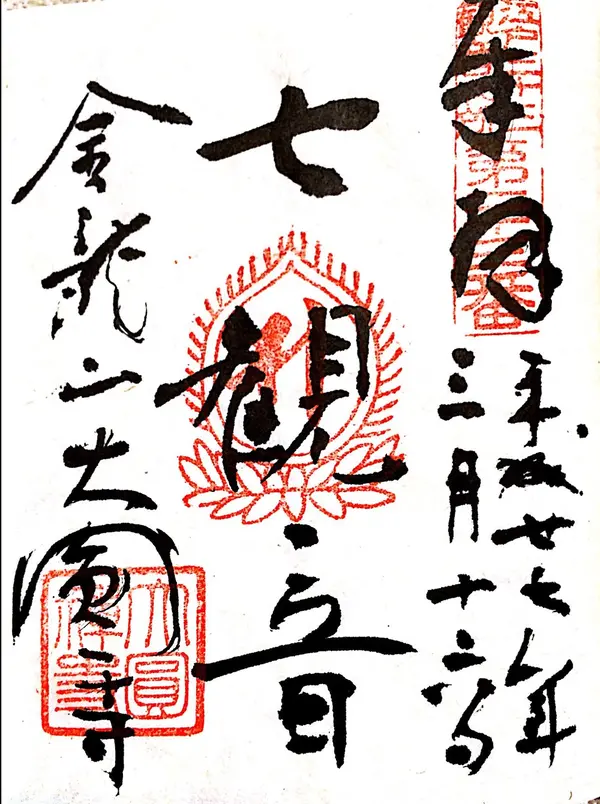 奉拝
平成廿七年
三月十二日
七観音
金龍山大圓寺